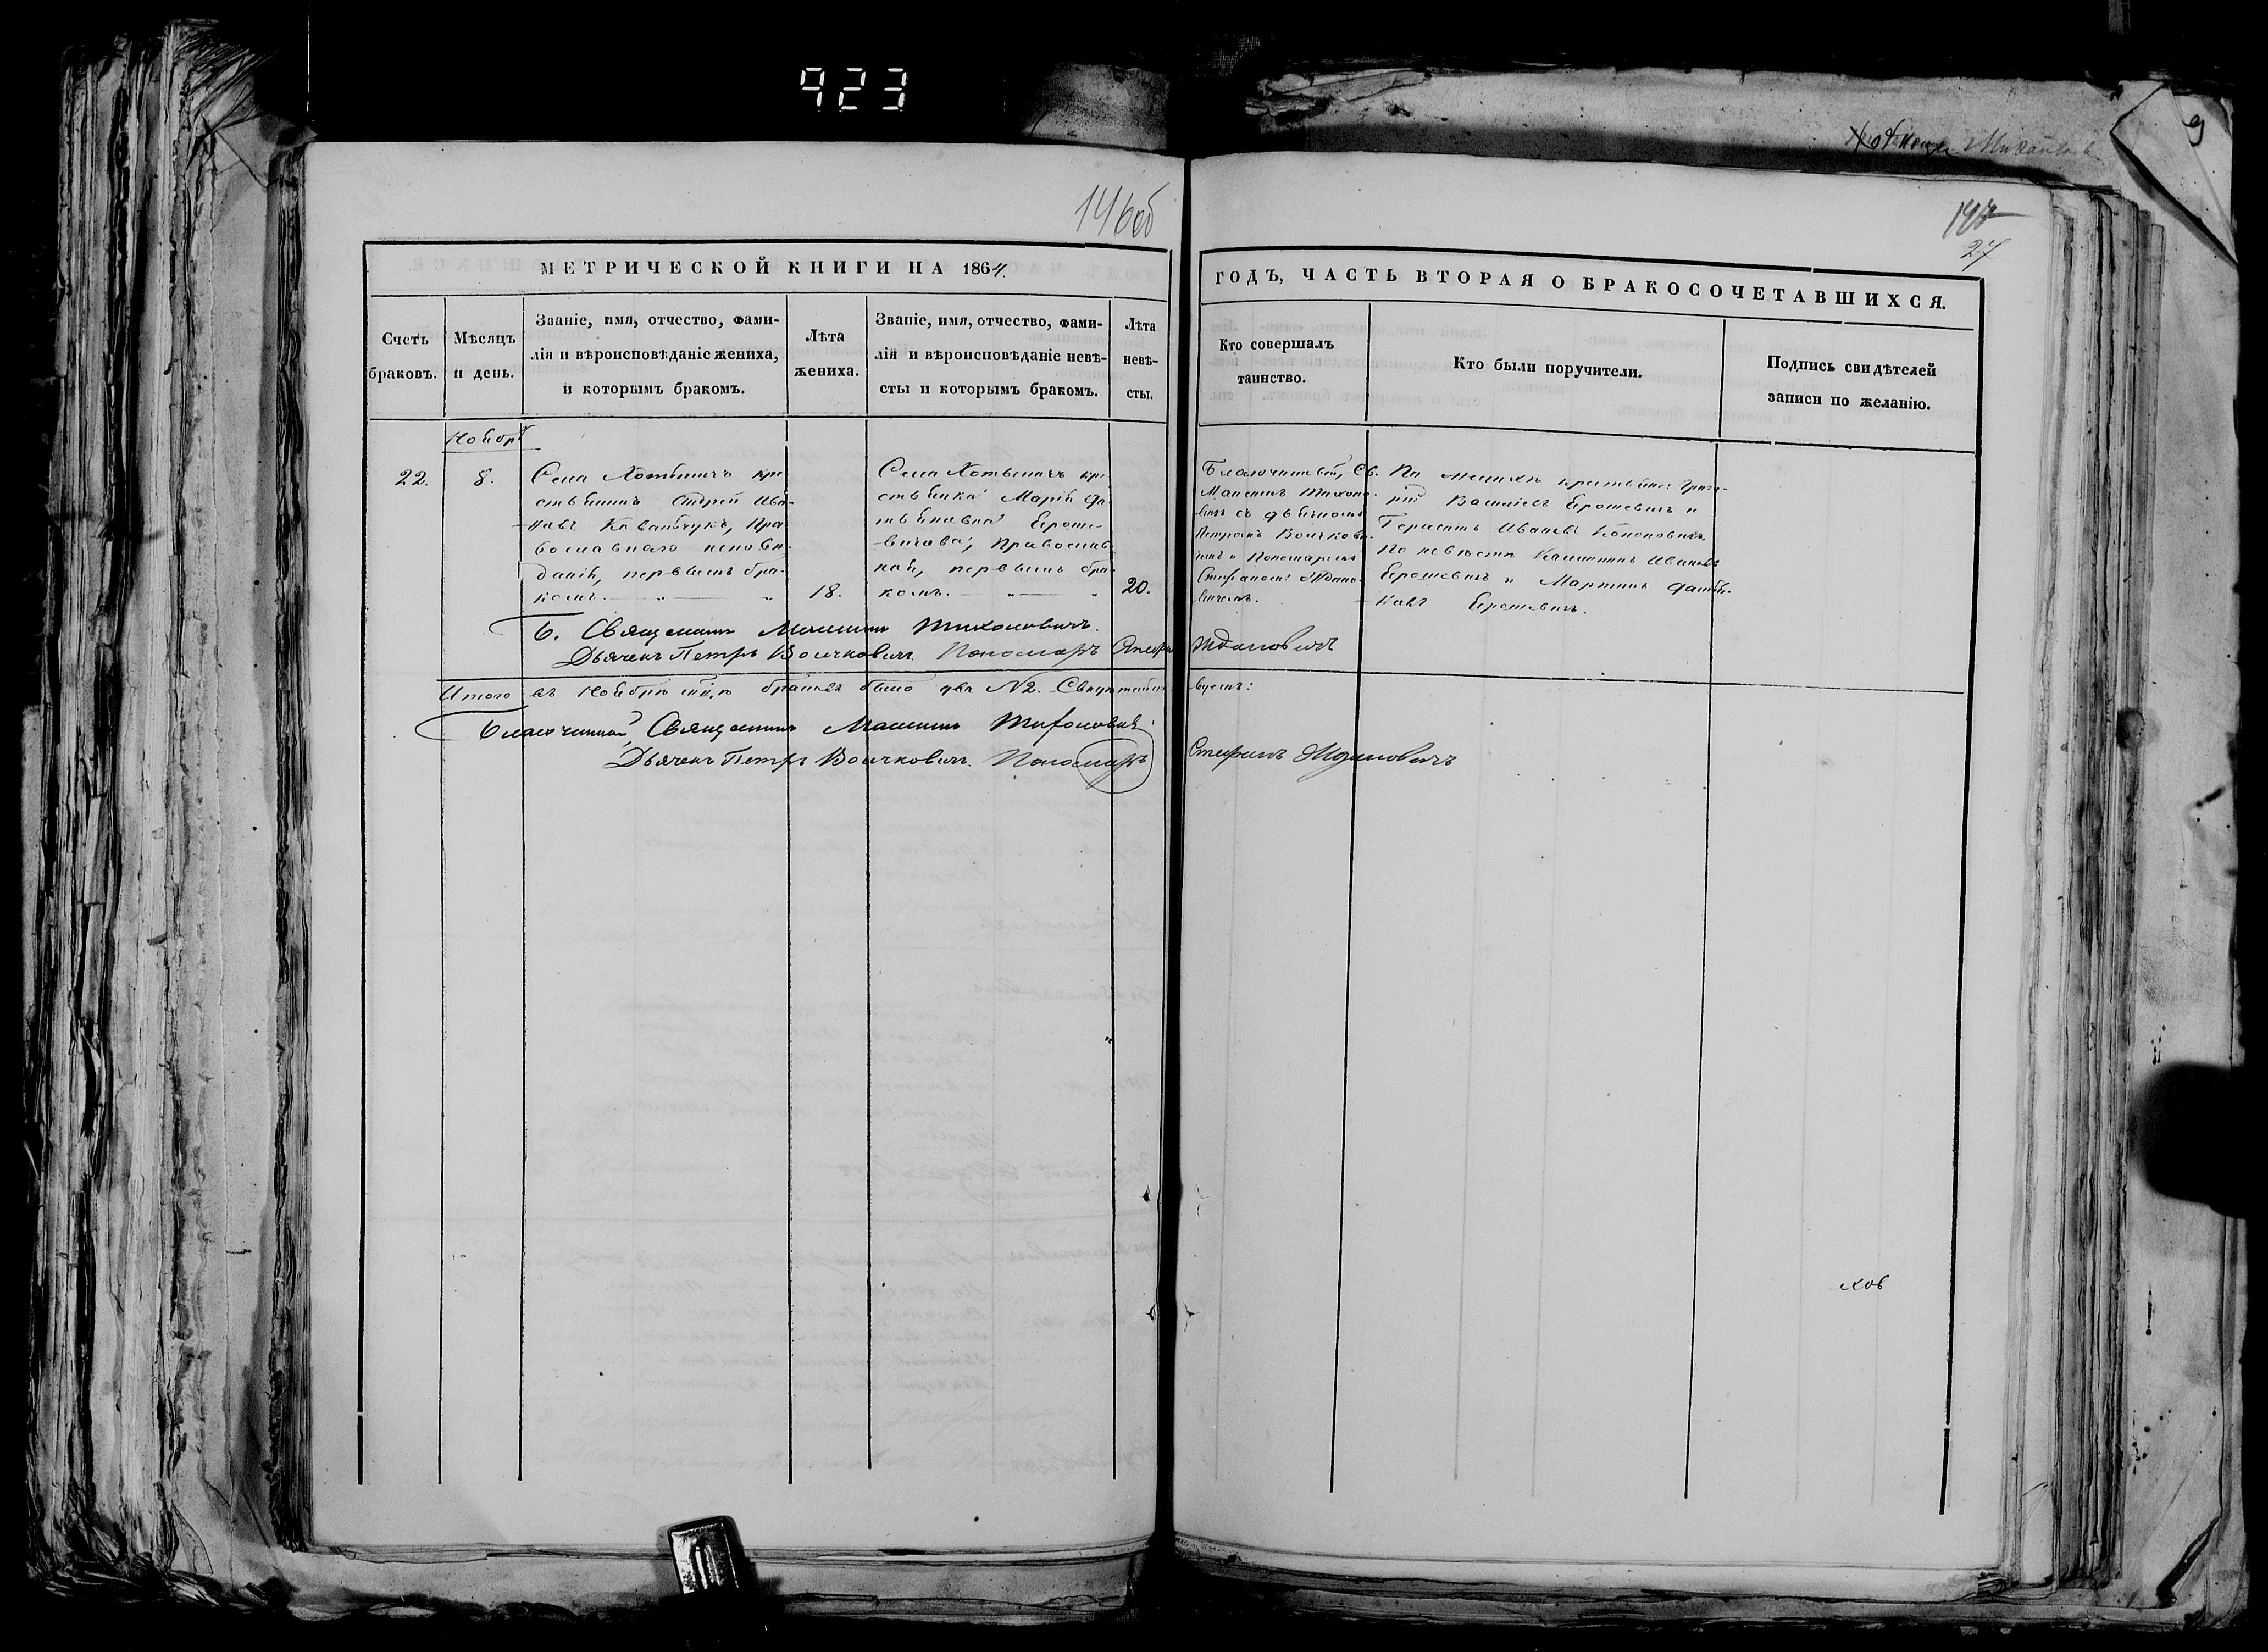 923
146об
147
27
МЕТРИЧЕСКОЙ КНИГИ НА 1864.
ГОДЪ, ЧАСТЬ ВТОРАЯ О БРАКОСОЧЕТАВШИХСЯ.
Счетъ
браковъ.
Мѣсяцъ
и день.
Званіе, имя, отчество, фами-
лія и вѣроисповѣданіе жениха,
и которымъ бракомъ.
Лѣта
жениха.
Званіе, имя, отчество, фами-
лія и вѣроисповѣданіе невѣ-
сты и которымъ бракомъ.
Лѣта
невѣ-
сты.
Кто совершалъ
таинство.
Кто были поручители.
Подпись свидѣтелей
записи по желанію.
22.
Ноября
8.
Села кре-
стьянинъ Ива-
новъ Ковальчукъ, Пра-
вославнаго исповѣ-
данія, первымъ бра-
комъ.
18.
Села кре-
стьянка Марія
православ-
ная, первымъ бра-
комъ.
20.
Благочинный, Св.
Максимъ Тихоно-
вичъ съ дьячкомъ
Петромъ Волчкови-
чемъ и Пономаремъ
Стефаномъ Ждано-
вичемъ.
По женихѣ крестьяне Григо-
рій Василіевъ и
Герасимъ Ивановъ Кононовичъ.
По невѣстѣ Ивановъ
и Мартинъ
Б. Священникъ Максимъ Тихоновичъ.
Дьячекъ Петръ Волчковичъ. Пономарь Стефанъ Ждановичъ
Итого въ Ноябрѣ браковъ было два №2. Свидѣтельствуемъ:
Благочинный, Священникъ Максимъ Тихоновичъ.
Дьячекъ Петръ Волчковичъ. Пономарь Стефанъ Ждановичъ